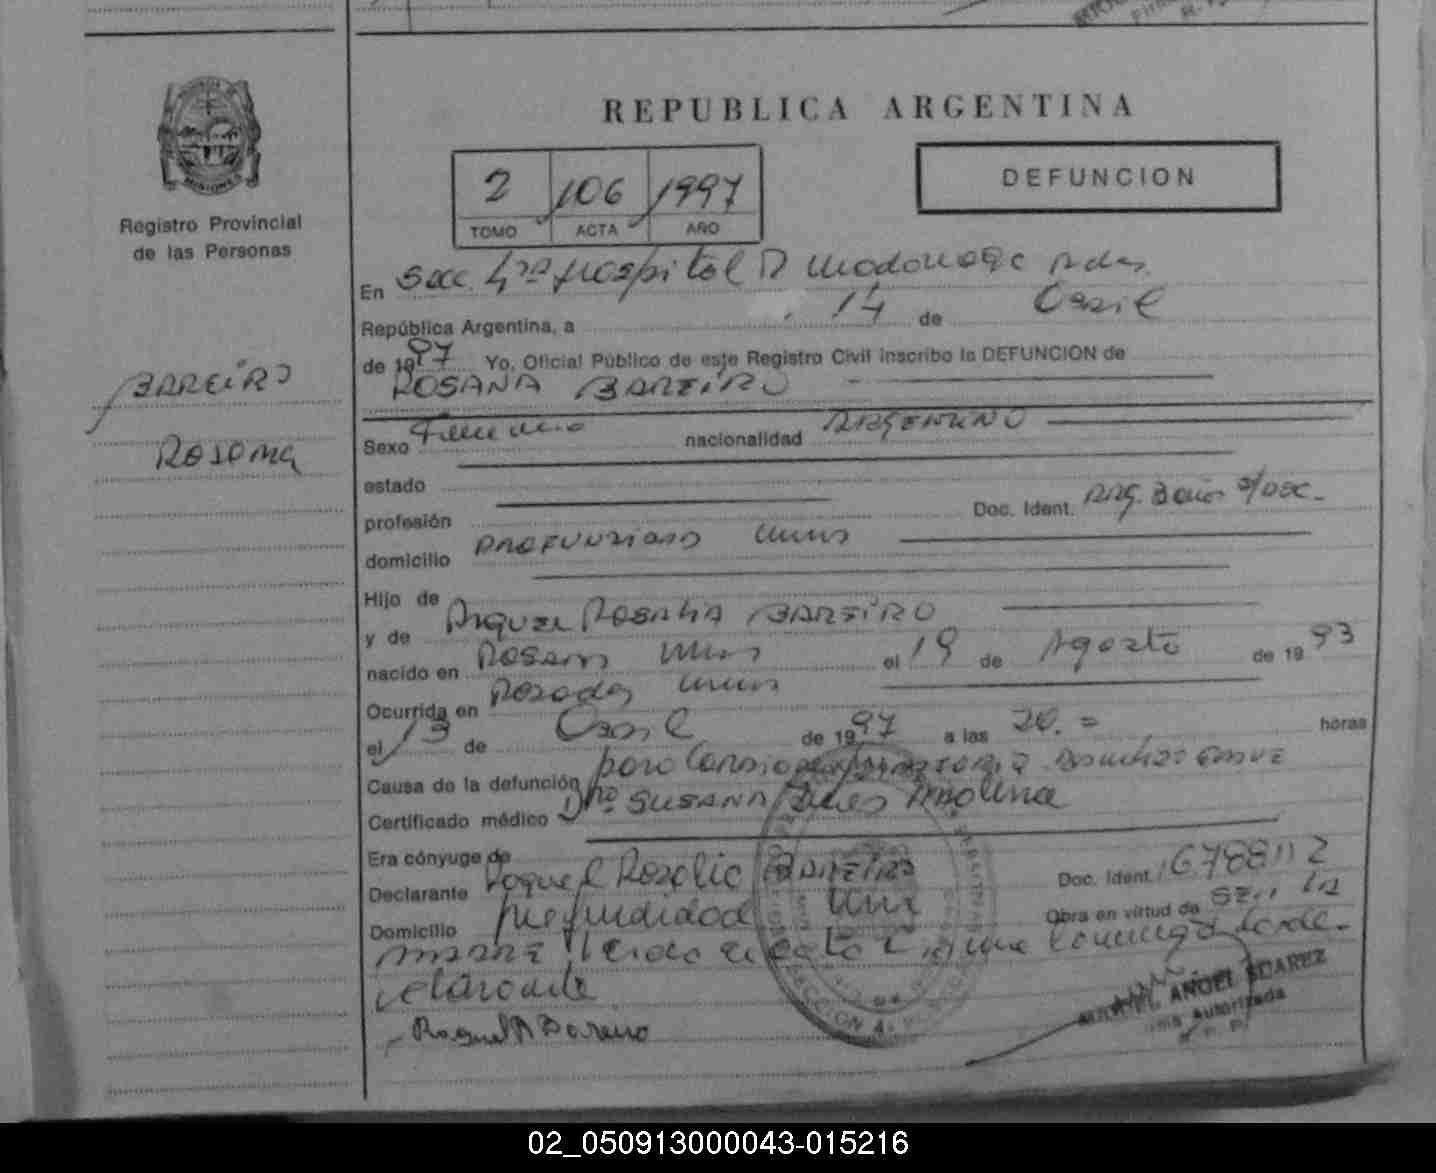 REPUBLICA ARGENTINA
DEFUNCION
2 106 1997
TOMO ACTA AÑO
MISIONES
Registro Provincial
de las Personas
BAREIRO
ROSANA
En Secc. 4ta Hospital R Madariaga Pdas.
República Argentina, a 14 de Abril
de 1997 Yo, Oficial Público de este Registro Civil inscribo la DEFUNCION de
ROSANA BAREIRO
Sexo Femenino nacionalidad ARGENTINO
estado
profesión Doc. Ident. ARG.
domicilio PROFUNDIDAD Mnes
Hijo de
y de RAQUEL ROSALIA BAREIRO
nacido en Posadas Mnes el 19 de Agosto de 1993
Ocurrida en Posadas Mnes
el 13 de Abril de 1997 a las 20.= horas
Causa de la defunción paro
Certificado médico Dra. SUSANA Molina
Era cónyuge de
Declarante Raquel Rosalia BAREIRO Doc. Ident. 16788112
Domicilio Profundidad Mnes Obra en virtud de SER LA
MADRE leida el acta la firma conmigo la de-
clarante
Raquel R Bareiro
MIGUEL ANGEL SUAREZ
Firma Autorizada
R. P.
02_050913000043-015216